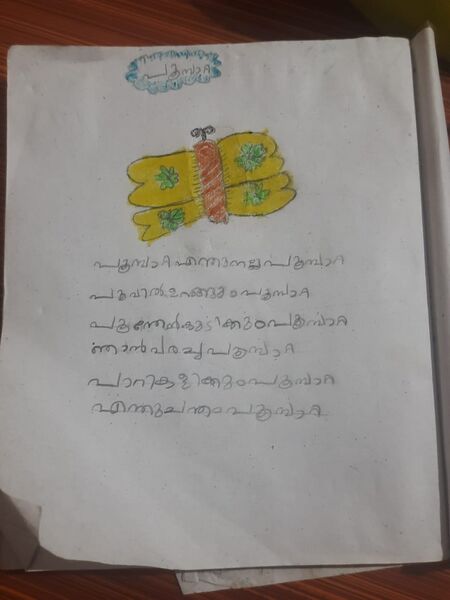 പൂമ്പാറ്റ
പൂമ്പാറ്റ എന്തു നല്ല പൂമ്പാറ്റ
പൂവിൽ ഉറങ്ങും പൂമ്പാറ്റ
പൂന്തേൻ കുടിക്കും പൂമ്പാറ്റ
ഞാൻ വരച്ച പൂമ്പാറ്റ
പാറി കളിക്കും പൂമ്പാറ്റ
എന്തു ചന്തം പൂമ്പാറ്റ